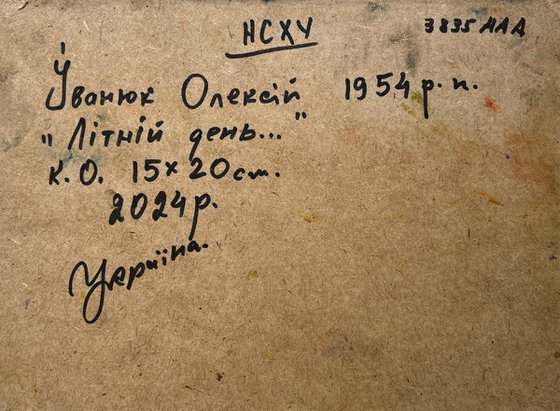 НСХУ 3835 МАА
Іванюк Олексій 1954 р.н.
"Літній день..."
К.О. 15×20 см.
2024р.
Україна.